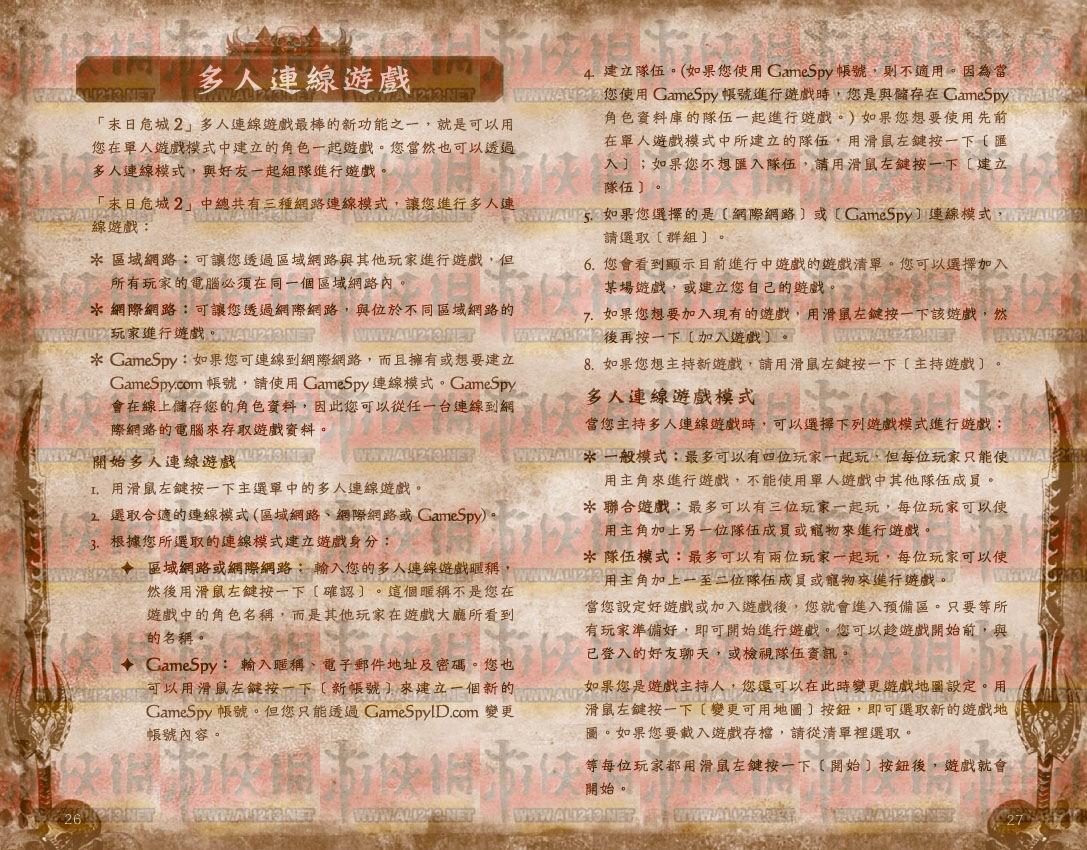 多人連線遊戲
「末日危城2」多人連線遊戲最棒的新功能之一，就是可以用
您在單人遊戲模式中建立的角色一起遊戲。您當然也可以透過
多人連線模式，與好友一起組隊進行遊戲。
「末日危城2」中總共有三種網路連線模式，讓您進行多人連
線遊戲：
＊ 區域網路：可讓您透過區域網路與其他玩家進行遊戲，但
所有玩家的電腦必須在同一個區域網路內。
＊ 網際網路：可讓您透過網際網路，與位於不同區域網路的
玩家進行遊戲。
＊ GameSpy：如果您可連線到網際網路，而且擁有或想要建立
GameSpy.com 帳號，請使用 GameSpy 連線模式。GameSpy
會在線上儲存您的角色資料，因此您可以從任一台連線到網
際網路的電腦來存取遊戲資料。
開始多人連線遊戲
1. 用滑鼠左鍵按一下主選單中的多人連線遊戲。
2. 選取合適的連線模式(區域網路、網際網路或 GameSpy)。
3. 根據您所選取的連線模式建立遊戲身分：
✦ 區域網路或網際網路： 輸入您的多人連線遊戲暱稱，
然後用滑鼠左鍵按一下〔確認〕。這個暱稱不是您在
遊戲中的角色名稱，而是其他玩家在遊戲大廳所看到
的名稱。
✦ GameSpy： 輸入暱稱、電子郵件地址及密碼。您也
可以用滑鼠左鍵按一下〔新帳號〕來建立一個新的
GameSpy 帳號。但您只能透過 GameSpyID.com 變更
帳號內容。
26
4. 建立隊伍。(如果您使用 GameSpy 帳號，則不適用。因為當
您使用 GameSpy 帳號進行遊戲時，您是與儲存在 GameSpy
角色資料庫的隊伍一起進行遊戲。) 如果您想要使用先前
在單人遊戲模式中所建立的隊伍，用滑鼠左鍵按一下〔匯
入〕；如果您不想匯入隊伍，請用滑鼠左鍵按一下〔建立
隊伍〕。
5. 如果您選擇的是〔網際網路〕或〔GameSpy〕連線模式，
請選取〔群組〕。
6. 您會看到顯示目前進行中遊戲的遊戲清單。您可以選擇加入
某場遊戲，或建立您自己的遊戲。
7. 如果您想要加入現有的遊戲，用滑鼠左鍵按一下該遊戲，然
後再按一下〔加入遊戲〕。
8. 如果您想主持新遊戲，請用滑鼠左鍵按一下〔主持遊戲〕。
多人連線遊戲模式
當您主持多人連線遊戲時，可以選擇下列遊戲模式進行遊戲：
＊ 一般模式：最多可以有四位玩家一起玩，但每位玩家只能使
用主角來進行遊戲，不能使用單人遊戲中其他隊伍成員。
＊ 聯合遊戲：最多可以有三位玩家一起玩，每位玩家可以使
用主角加上另一位隊伍成員或寵物來進行遊戲。
＊ 隊伍模式：最多可以有兩位玩家一起玩，每位玩家可以使
用主角加上一至二位隊伍成員或寵物來進行遊戲。
當您設定好遊戲或加入遊戲後，您就會進入預備區。只要等所
有玩家準備好，即可開始進行遊戲。您可以趁遊戲開始前，與
已登入的好友聊天，或檢視隊伍資訊。
如果您是遊戲主持人，您還可以在此時變更遊戲地圖設定。用
滑鼠左鍵按一下〔變更可用地圖〕按鈕，即可選取新的遊戲地
圖。如果您要載入遊戲存檔，請從清單裡選取。
等每位玩家都用滑鼠左鍵按一下〔開始〕按鈕後，遊戲就會
開始。
27
游俠網
WWW.ALI213.NET